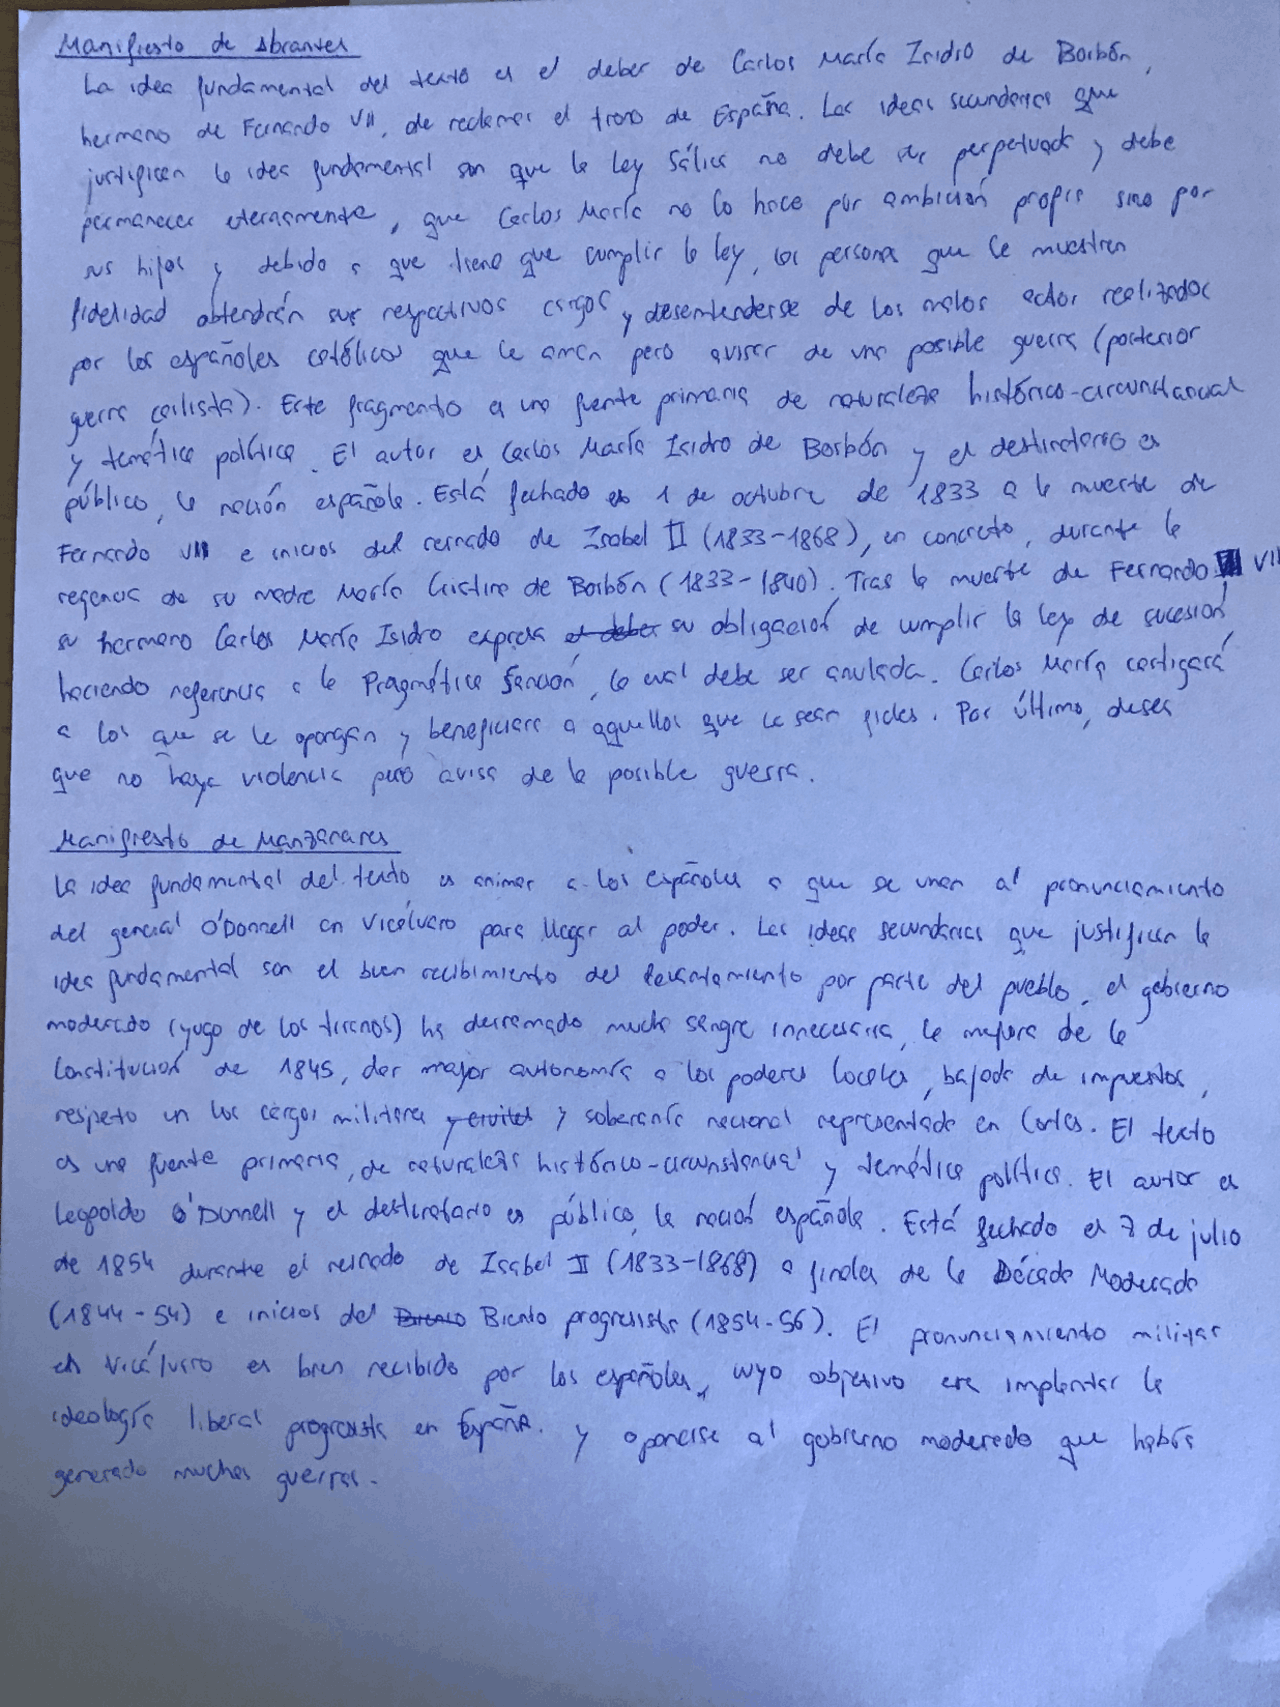 Manifiesto de Abrantes
La idea fundamental del texto es el deber de Carlos María Isidro de Borbón,
hermano de Fernando VII, de reclamar el trono de España. Las ideas secundarias que
justifican la idea fundamental son que la Ley Sálica no debe ser perpetuada y debe
permanecer eternamente, que Carlos María no lo hace por ambición propia sino por
sus hijos y debido a que tiene que cumplir la ley, las personas que le muestren
fidelidad obtendrán sus respectivos cargos y desentenderse de los malos actos realizados
por los españoles católicos que le aman pero avisar de una posible guerra (posterior
guerra carlista). Este fragmento es una fuente primaria de naturaleza histórico-circunstancial
y temática política. El autor es Carlos María Isidro de Borbón y el destinatario es
público, la nación española. Está fechado es 1 de octubre de 1833 a la muerte de
Fernando VII e inicios del reinado de Isabel II (1833-1868), en concreto, durante la
regencia de su madre María Cristina de Borbón (1833-1840). Tras la muerte de Fernando VII
su hermano Carlos María Isidro expresa el deber su obligación de cumplir la ley de sucesión,
haciendo referencia a la Pragmática Sanción, la cual debe ser anulada. Carlos María castigará
a los que se le opongan y beneficiará a aquellos que le sean fieles. Por último, desea
que no haya violencia pero avisa de la posible guerra.
Manifiesto de Manzanares
La idea fundamental del texto es animar a los españoles a que se unan al pronunciamiento
del general O'Donnell en Vicálvaro para llegar al poder. Las ideas secundarias que justifican la
idea fundamental son el buen recibimiento del levantamiento por parte del pueblo, el gobierno
moderado (yugo de los tiranos) ha derramado mucha sangre innecesaria, la mejora de la
Constitución de 1845, dar mayor autonomía a los poderes locales, bajada de impuestos,
respeto en los cargos militares y civiles y soberanía nacional representada en Cortes. El texto
es una fuente primaria, de naturaleza histórico-circunstancial y temática política. El autor es
Leopoldo O'Donnell y el destinatario es público, la nación española. Está fechado el 7 de julio
de 1854 durante el reinado de Isabel II (1833-1868) a finales de la Década Moderada
(1844-54) e inicios del Bienio progresista (1854-56). El pronunciamiento militar
en Vicálvaro es bien recibido por los españoles, cuyo objetivo era implantar la
ideología liberal progresista en España. y oponerse al gobierno moderado que había
generado muchas guerras.